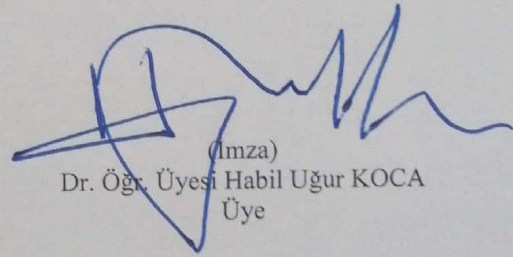 (İmza)
Dr. Öğr. Üyesi Habil Uğur KOCA
Üye